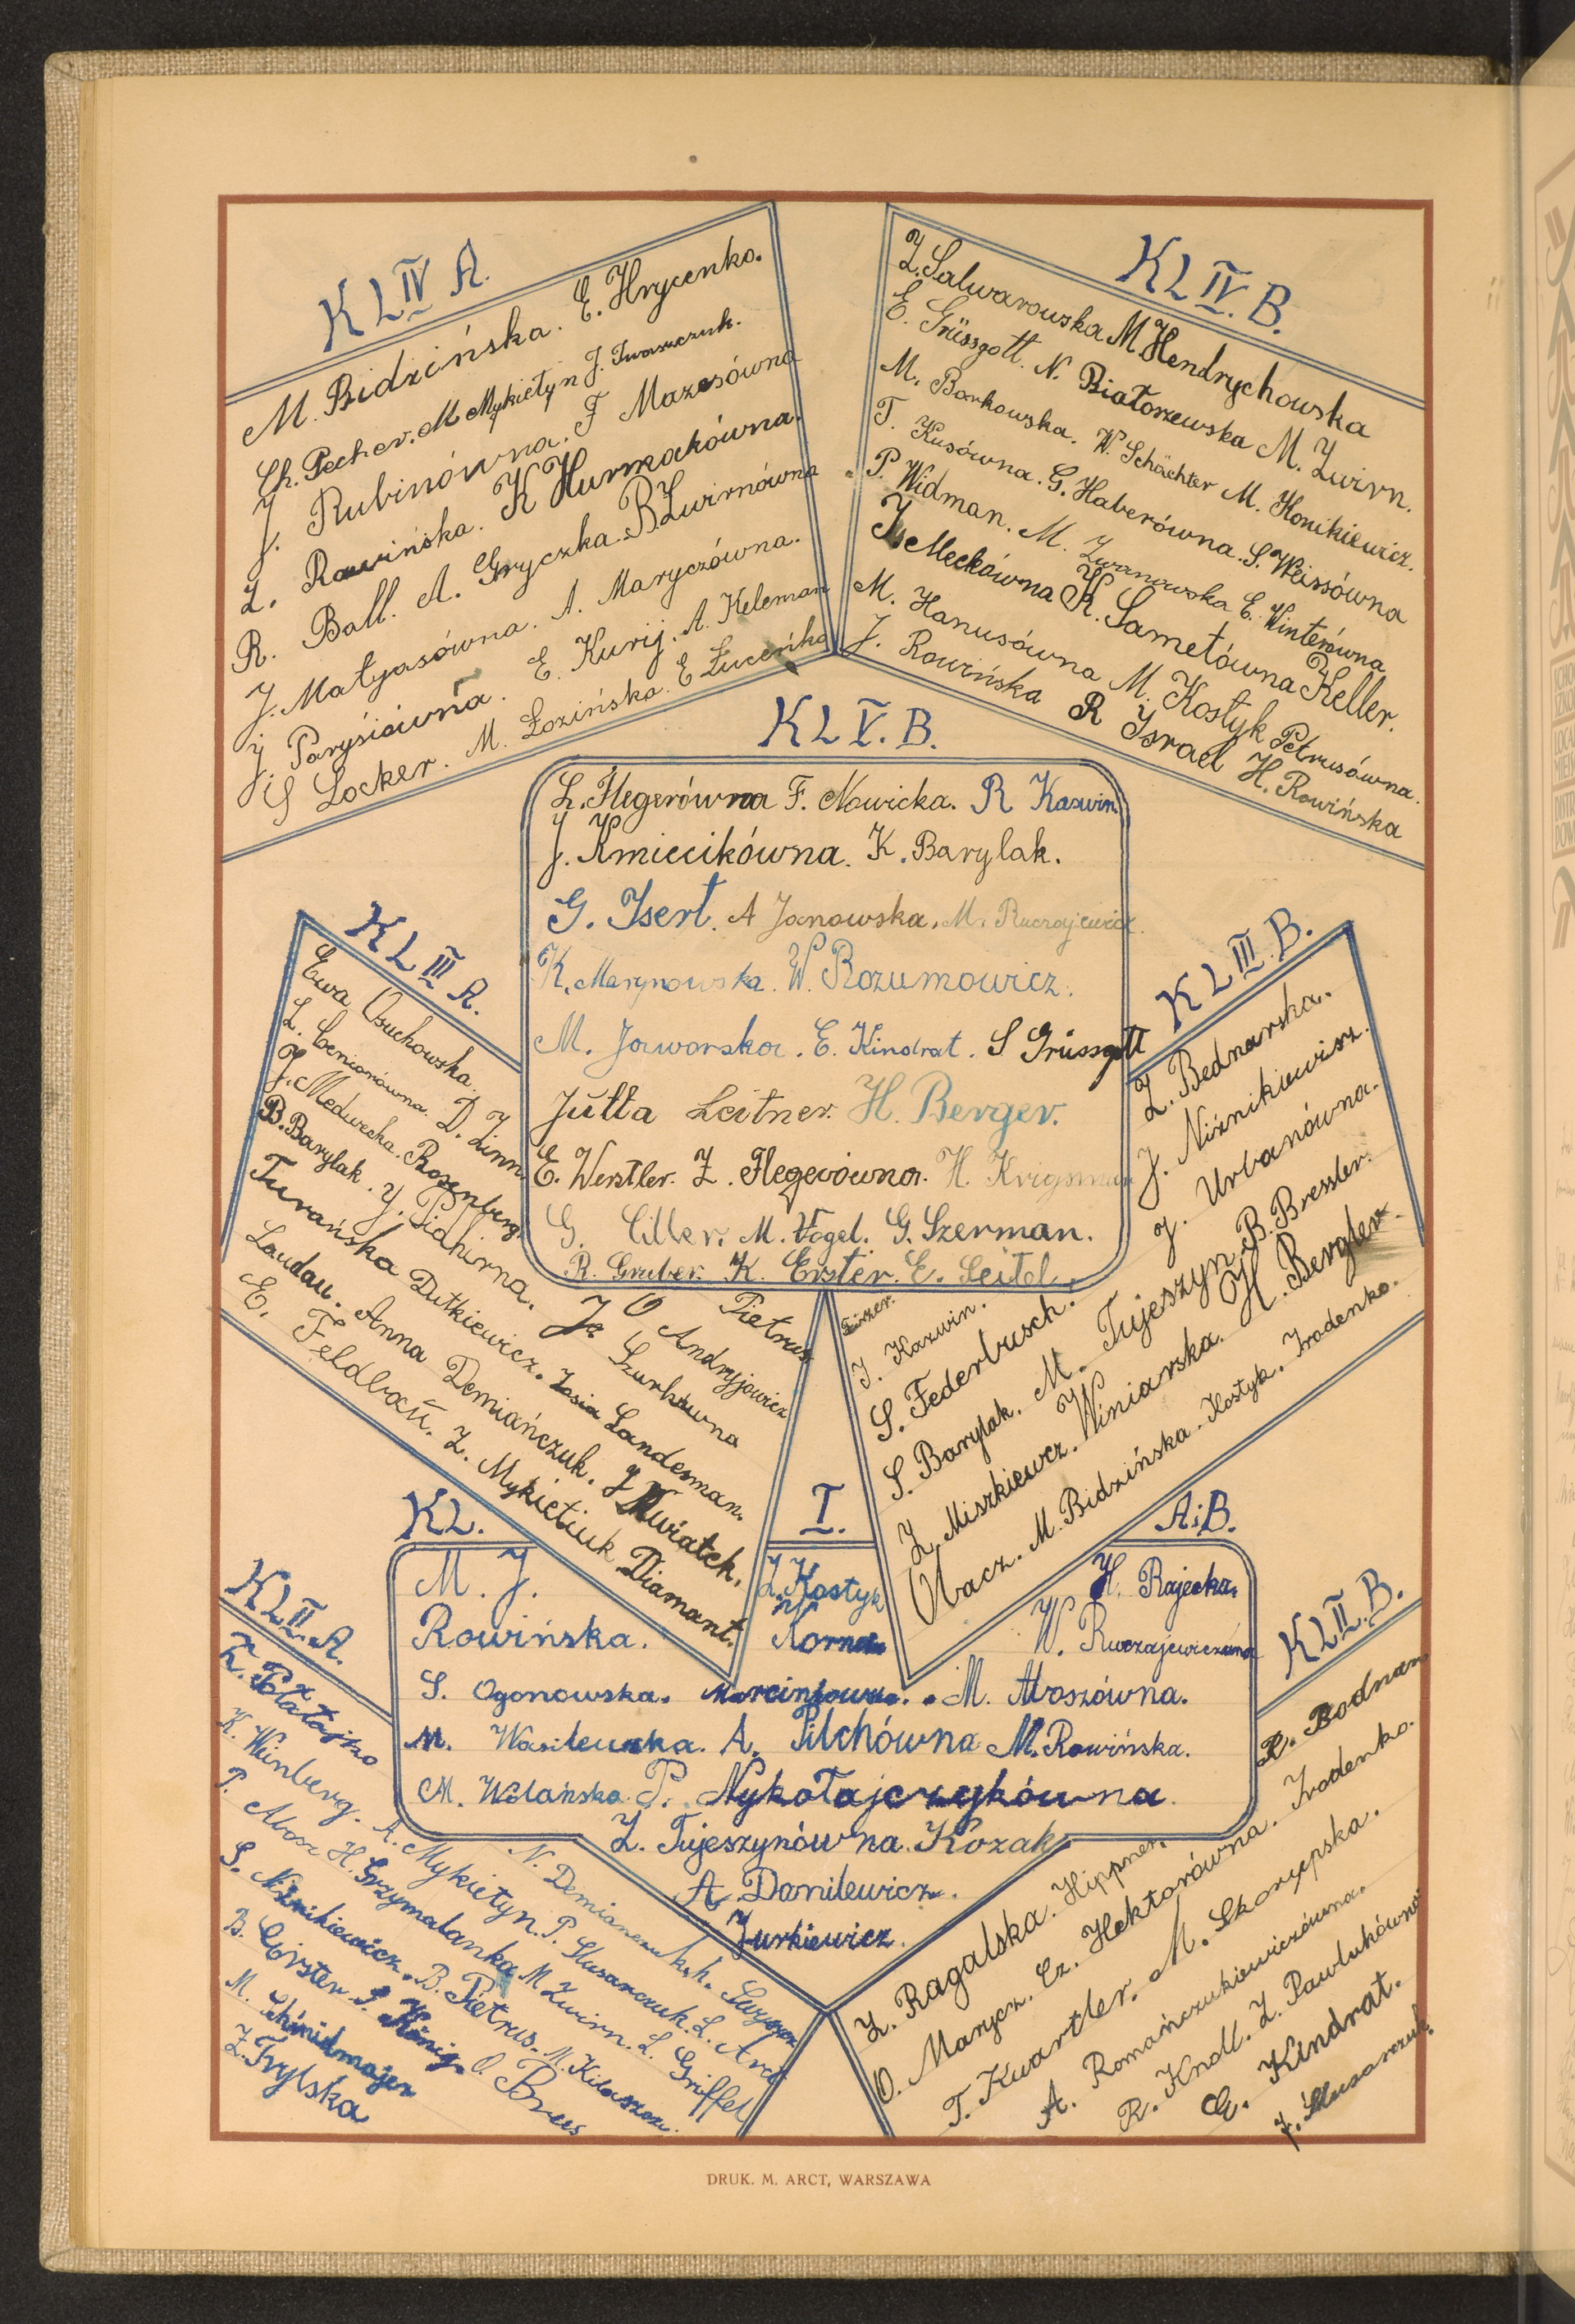 KL IV A.
M. Bidzińska. E. Hrycenko.
Ch. Pecher. M Mykietyn J. Iwaszczuk.
J. Rubinówna. F Mazesówna
Z. Rowińska. K Hurmakówna.
R. Ball. A. Gryczka. B Zwirnówna
J. Matyasówna. A. Maryczówna.
J. Parysiówna. E. Kurij. A. Keleman
S Locker. M. Łozińska. E Łuceńko
KL IV. B.
Z. Salwarowska M. Hendrychowska
E. Grüssgott. N. Białorzewska M. Zwirn.
M. Borkowska. W. Schächter M. Honikiewicz.
T. Kusówna. G. Haberówna. S. Weissówna
P. Widman. M. Zwanowska E. Winterówna
J. Meckówna R. Sametówna Keller.
M. Hanusówna M. Kostyk Petrusówna.
J. Rowińska R Israel H. Rowińska
KL V. B.
L. Flegerówna F. Nowicka. R Kazwin.
J. Kmiecikówna. K. Barylak.
G. Isert. A Janowska. M. Ruczajewicz.
K. Marynowska. W. Rozumowicz.
M. Jaworska. E. Kindrat. S Grüssgott
Jutta Leitner. H. Berger.
E. Werstler. Z. Flegerówna. H. Krigsman
G. Ciller. M. Vogel. G. Szerman.
R. Gruber. K. Erster. E. Seitel.
KL III A.
Ewa Osuchowska.
L. Cenianówna. D. Zinn.
J. Medwecka. Rosenberg.
B. Barylak. J. Pidhirna. O Pietrus
Turańska Dutkiewicz. Ja Szurkówna Andryjowicz
Landau. Anna Demiańczuk. Zosia Landesman.
E. Feldbau. Z. Mykietiuk J Kwiatek.
Diamant.
KL III. B.
Z. Bednarska.
J. Niżnikiewisz.
J. Urbanówna.
J. Kazwin.
S. Federbusch. M. Tujeszyn. B. Bressler.
S. Barylak. W. Winiarska. H. Bergler.
Z. Miszkiewcz. M. Bidzińska. Kostyk. Irodenko.
Wacz.
KL. I. A i B.
M. J. Z. Kostyk H. Rajecka.
Rowińska. W. Ruczajewiczówna
S. Ogonowska. M. Moroszówna.
M. Wasilewska. A. Pilchówna M. Rowińska.
M. Wolańska P. Nykołajczykówna.
Z. Tujeszynówna. Kozak
A. Danilewicz.
Jurkiewicz.
KL II. A.
Z. Pałajko
K. Weinberg. A. Mykietyn. N. Demianczuk.
P. H. Grzymalanka P. Slusarczuk. L. Ard
S. Niżnikiewicz. M Zwirn. L. Griffel
B. Görsten B. Pietrus. M.
M. Schmidmajer J. König. O. Prus
Z. Trylska
KL II. B.
R. Bodnar
Z. Ragalska. Hippner.
O. Marycz. Cz. Hektorówna. Irodenko.
T. Kwartler. M. Skorypska.
A. Romańczukiewiczówna.
R. Knoll. Z. Pawlukówna
G. Kindrat.
J. Slusarczuk.
DRUK. M. ARCT, WARSZAWA